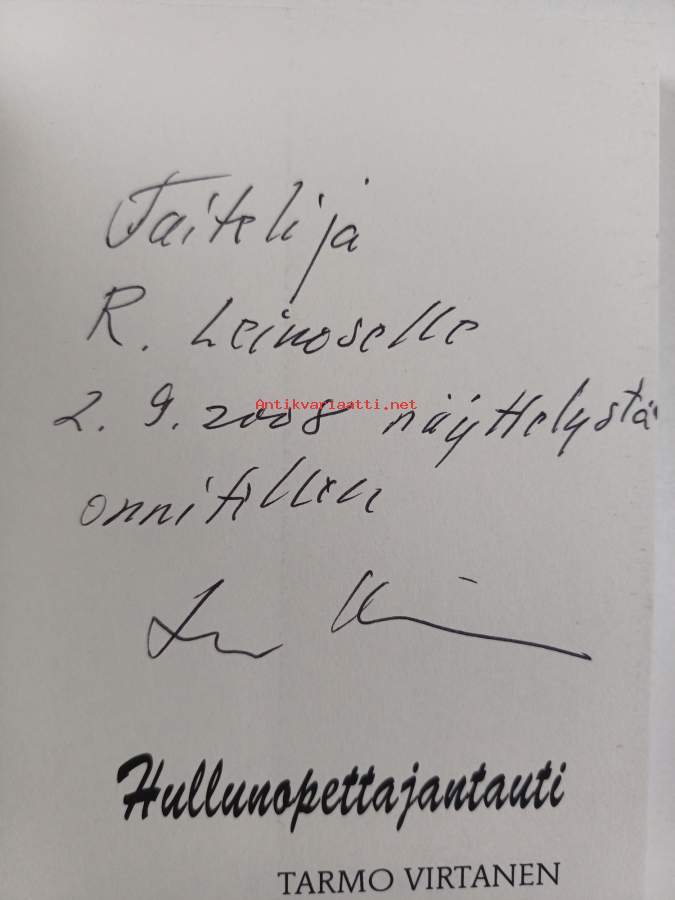 Taitelija
R. Leinoselle
2. 9. 2008 näyttelystä
Antikvariaatti.net
onnitellen
Hullunopettajantauti
TARMO VIRTANEN